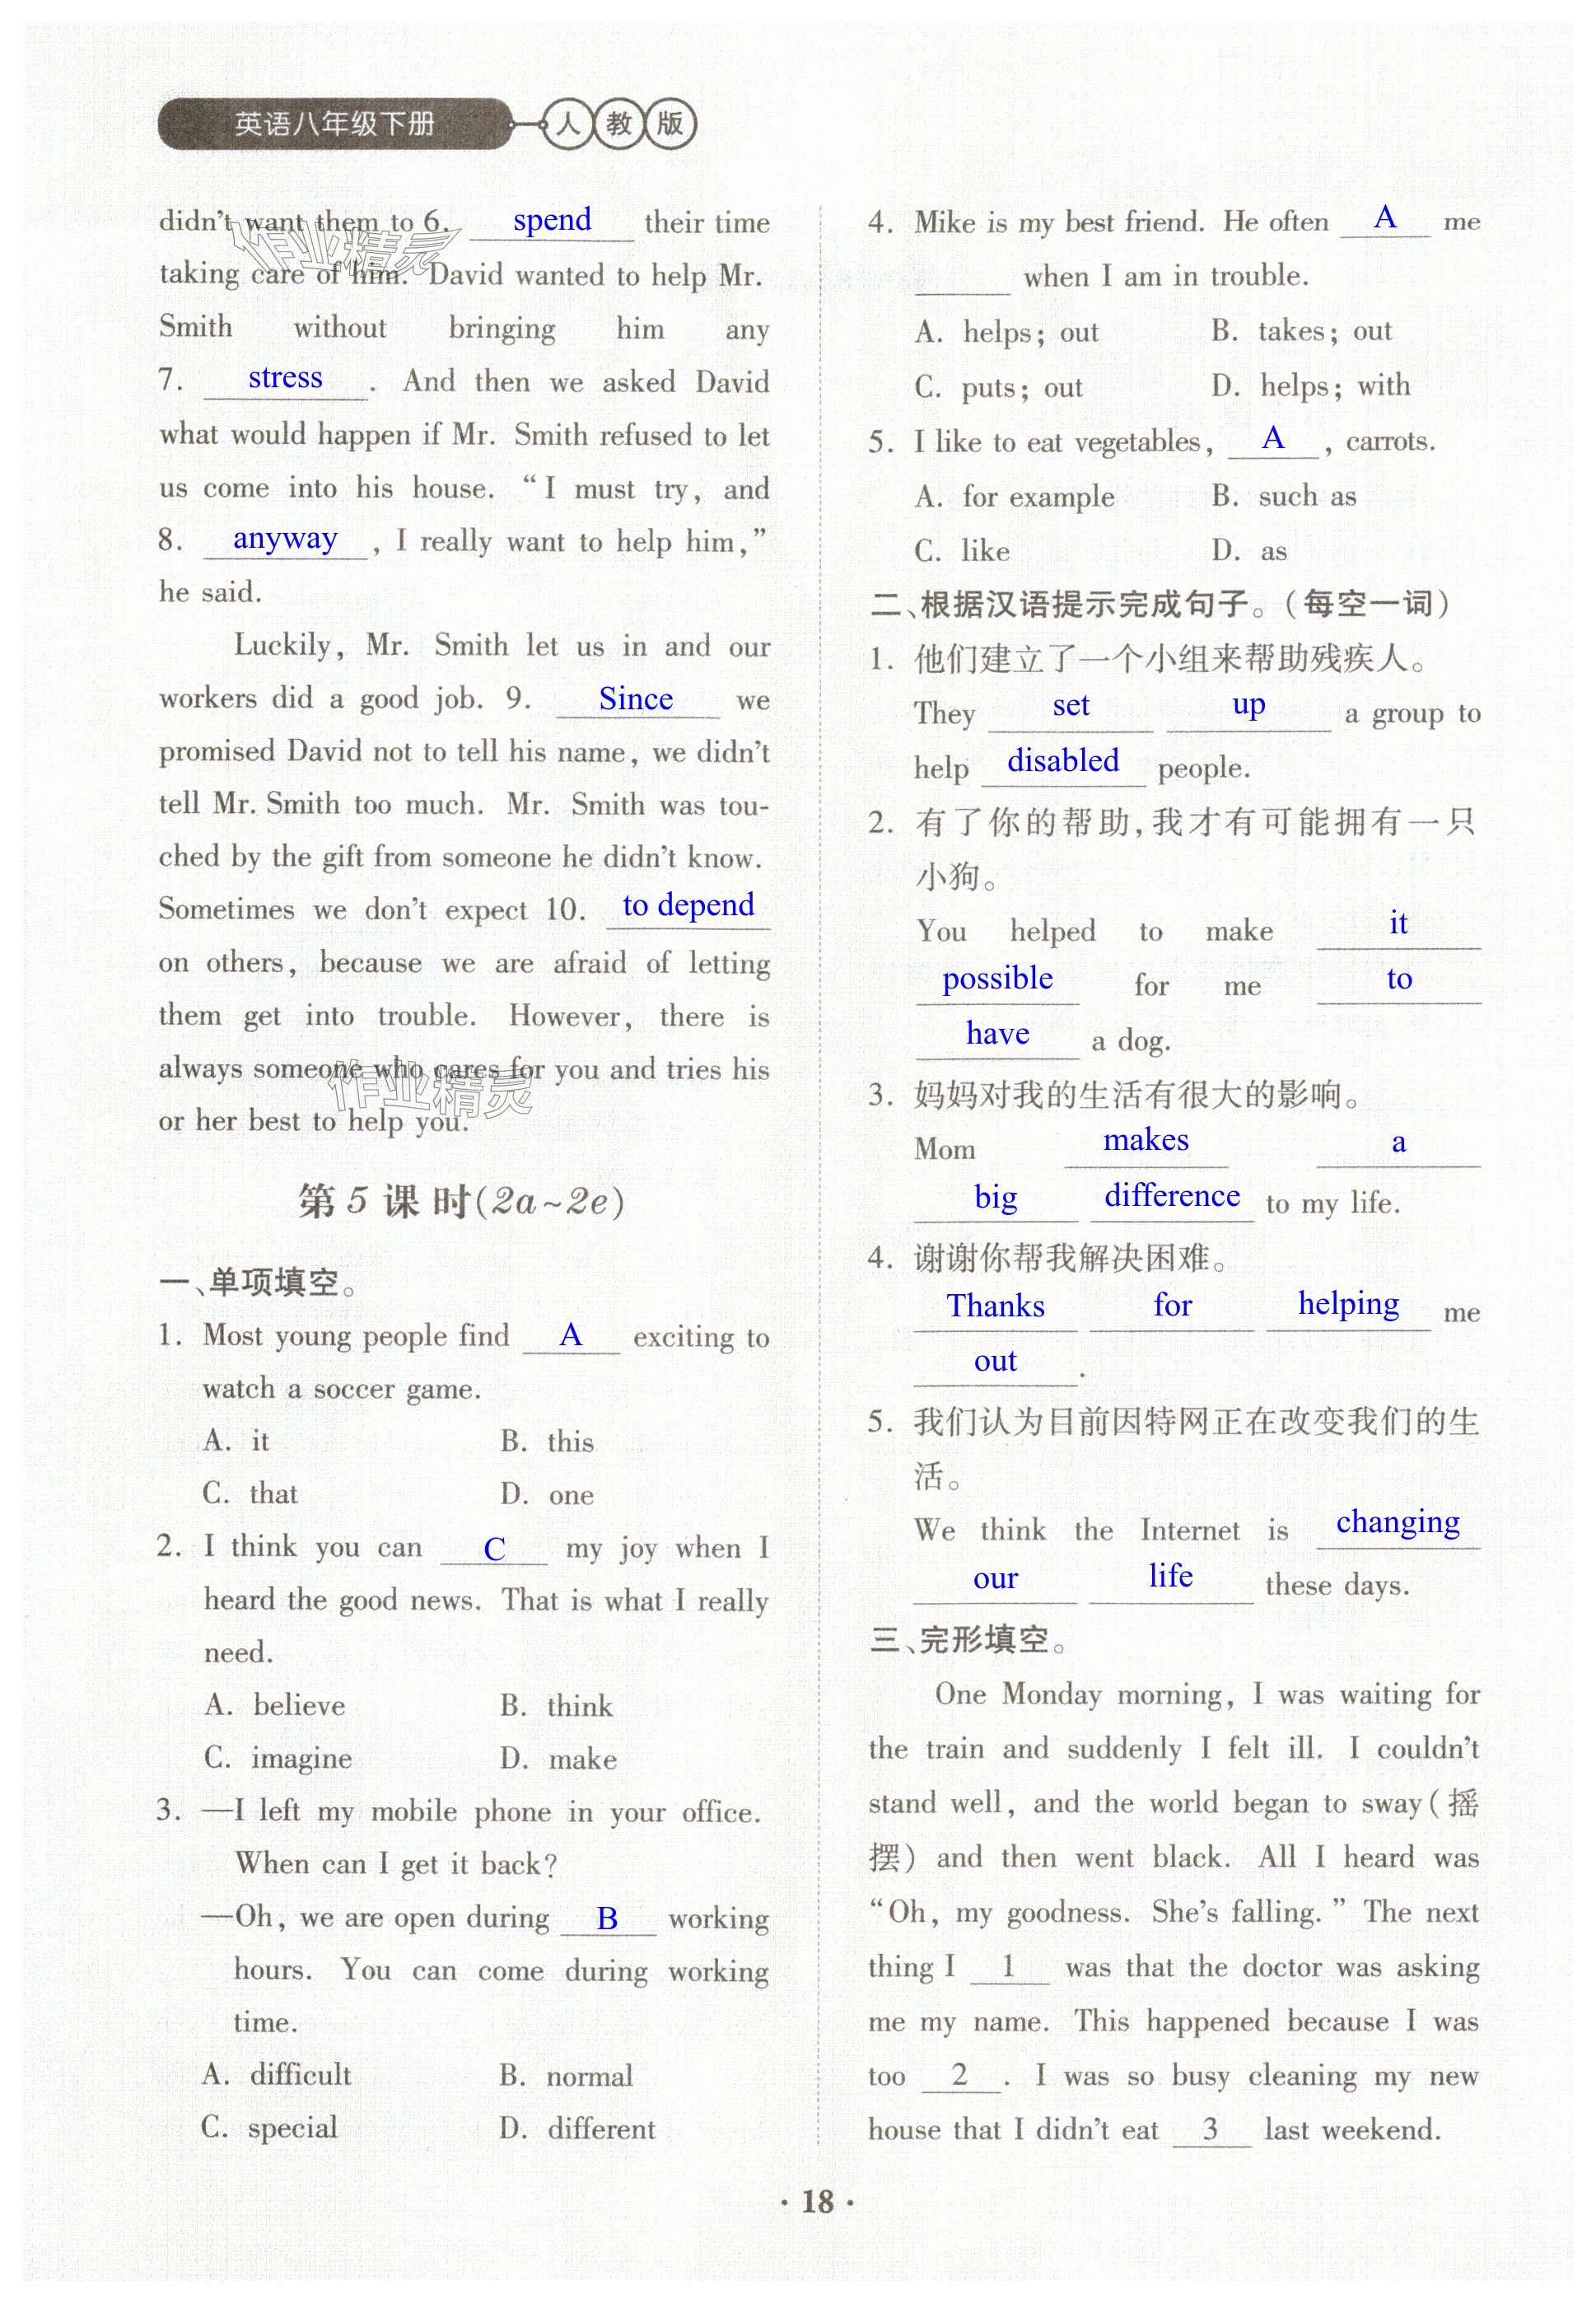 英语八年级下册 人教版
didn't want them to 6. spend their time
taking care of him. David wanted to help Mr.
Smith without bringing him any
7. stress . And then we asked David
what would happen if Mr. Smith refused to let
us come into his house. “I must try, and
8. anyway , I really want to help him,”
he said.
Luckily, Mr. Smith let us in and our
workers did a good job. 9. Since we
promised David not to tell his name, we didn't
tell Mr. Smith too much. Mr. Smith was tou-
ched by the gift from someone he didn't know.
Sometimes we don't expect 10. to depend
on others, because we are afraid of letting
them get into trouble. However, there is
always someone who cares for you and tries his
or her best to help you.
作业精灵
作业精灵
第 5 课时(2a~2e)
一、单项填空。
1. Most young people find A exciting to
watch a soccer game.
A. it B. this
C. that D. one
2. I think you can C my joy when I
heard the good news. That is what I really
need.
A. believe B. think
C. imagine D. make
3. —I left my mobile phone in your office.
When can I get it back?
—Oh, we are open during B working
hours. You can come during working
time.
A. difficult B. normal
C. special D. different
4. Mike is my best friend. He often A me
____ when I am in trouble.
A. helps; out B. takes; out
C. puts; out D. helps; with
5. I like to eat vegetables, A , carrots.
A. for example B. such as
C. like D. as
二、根据汉语提示完成句子。(每空一词)
1. 他们建立了一个小组来帮助残疾人。
They set up a group to
help disabled people.
2. 有了你的帮助,我才有可能拥有一只
小狗。
You helped to make it
possible for me to
have a dog.
3. 妈妈对我的生活有很大的影响。
Mom makes a
big difference to my life.
4. 谢谢你帮我解决困难。
Thanks for helping me
out .
5. 我们认为目前因特网正在改变我们的生
活。
We think the Internet is changing
our life these days.
三、完形填空。
One Monday morning, I was waiting for
the train and suddenly I felt ill. I couldn't
stand well, and the world began to sway(摇
摆) and then went black. All I heard was
“Oh, my goodness. She's falling.” The next
thing I 1 was that the doctor was asking
me my name. This happened because I was
too 2 . I was so busy cleaning my new
house that I didn't eat 3 last weekend.
· 18 ·